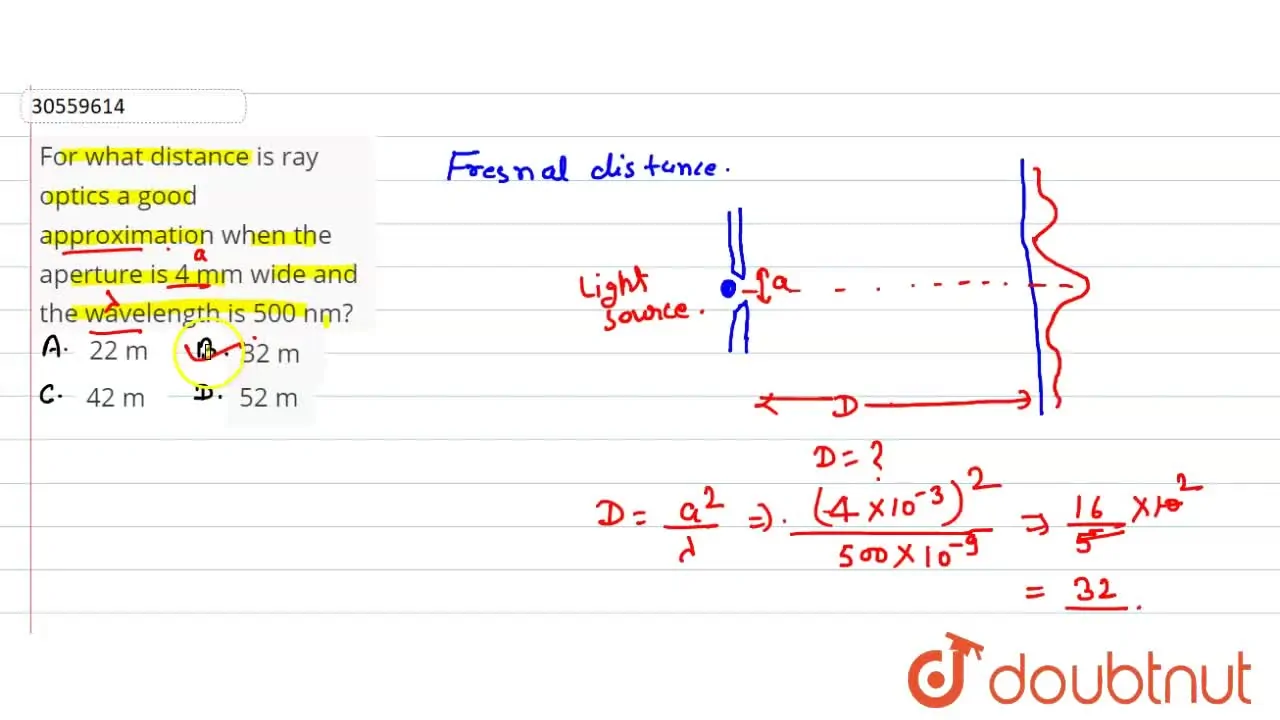 30559614
For what distance is ray
optics a good
approximation when the
a
aperture is 4 mm wide and
λ
the wavelength is 500 nm?
A. 22 m B. 32 m
C. 42 m D. 52 m
Fresnal distance.
Light
source.
a
D
D = ?
D = a²/λ ⇒ (4 × 10⁻³)²/500 × 10⁻⁹ ⇒ 16/5 × 10²
= 32
doubtnut